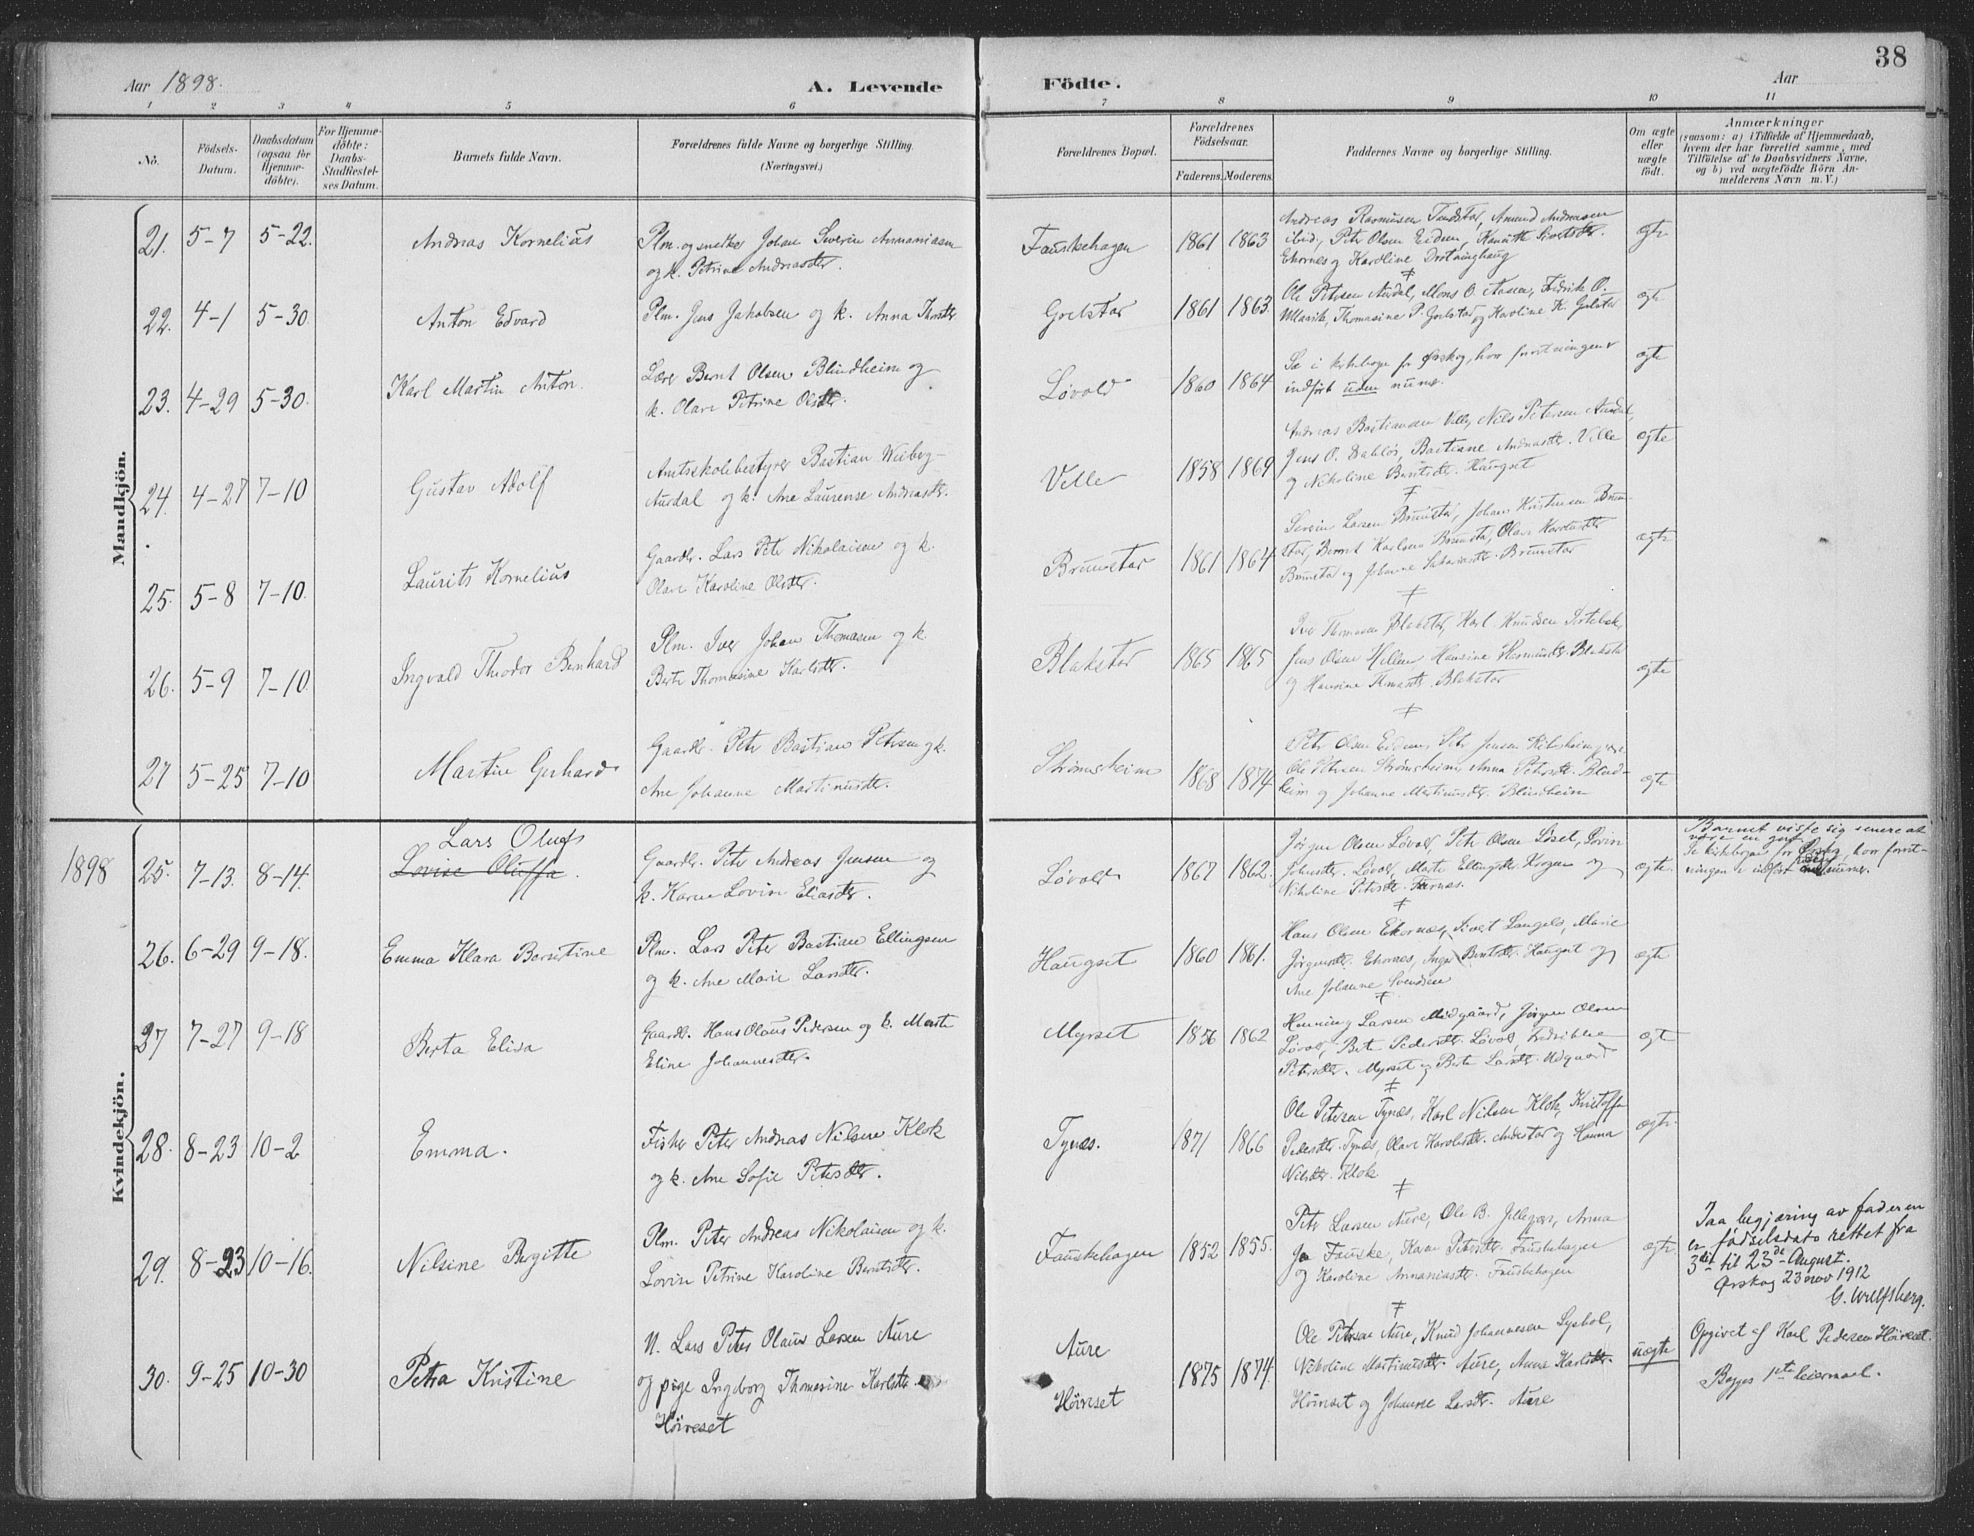 38
Aar 1898.
A. Levende
Födte.
Aar
1 2 3 4 5 6 7 8 9 10 11
No.
Födsels-Datum.
Daabsdatum (ogsaa for Hjemme-döbte).
For Hjemme-döbte: Daabs-Stadfæstel-ses Datum.
Barnets fulde Navn.
Forældrenes fulde Navne og borgerlige Stilling. (Næringsvei.)
Forældrenes Bopæl.
Forældrenes Födselsaar.
Faderens. Moderens.
Faddernes Navne og borgerlige Stilling.
Om ægte eller uægte födt.
Anmærkninger
(saasom: a) i Tilfælde af Hjemmedaab, hvem der har forrettet samme, med Tilföielse af to Daabsvidners Navne, og b) ved uægtefödte Börn An-melderens Navn m. V.)
Mandkjön.
21. 5-7 5-22. Andreas Kornelius
Plm. og snedker Johan Severin Annaniasen
og k. Petrine Andreasdtr.
Fauskehagen 1861 1863
Andreas Rasmusen Tandstad, Amund Andreasen
ibid., Petr Olsen Eidem,
Ekornes og Karoline Drotninghaug
ægte
22. 4-1 5-30. Anton Edvard
Plm. Jens Jakobsen og k. Anna
Gjelstad 1861 1863.
Ole Petersen Aurdal, Mons O. Aasen, Fredrik O.
Ullavik, Thomasine P. Gjelstad og Karoline K. Gjelstad
ægte
23. 4-29 5-30. Karl Martin Anton.
Lærer Bernt Olsen Blindheim og
k. Olave Petrine Olsdtr.
Løvold 1860 1864
Se i kirkeboge for Ørskog, hvor forretningen er
indført uden numer.
ægte
24. 4-27 7-10 Gustav Adolf
Amtsskolebestyrer Bastian Wiberg-
Aurdal og k. Ane Laurense Andreasdtr.
Velle 1858 1869
Andreas Bastiansen Velle, Nils Petersen Aurdal,
Jens O. Dahlås, Bastiane Andreasdtr. Velle
og Nikoline Berntsdtr. Haugset
ægte
25. 5-8 7-10. Laurits Kornelius
Gaardbr. Lars Petr Nikolaisen og k.
Olave Karoline Olsdtr.
Brunstad 1861 1864
Severin Larsen Brunstad, Johan Kristensen Brun-
stad, Bernt Karlsen Brunstad, Olave
Brunstad og Johanne Brunstad
ægte
26. 5-9 7-10. Ingvald Theodor Bernhard
Plm. Iver Johan Thomasen og k.
Berte Thomasine Karlsdtr.
Blakstad 1865 1865
Thomasen Blakstad, Karl Knudsen
Jens Olsen Hellen, Hansine Blakstad
og Hansine Blakstad
ægte
27 5-25 7-10 Martin Gerhard
Gaardbr. Petr Bastian Petersen og k.
Ane Johanne Martinusdtr.
Strømsheim 1868 1874
Petr Olsen Eidem, Petr Jensen
Ole Petersen Strømsheim, Anna Petersdtr. Blind-
heim og Johanne Martinusdtr. Blindheim
ægte
Kvindekjön.
1898 25. 7-13. 8-14. Lars Oluf
Lovise Oluffa.
Gaardbr. Peter Andreas Jensen og
k. Karen Lovise Eliasdtr.
Løvold 1867 1862.
Jørgen Olsen Løvold, Petr Olsen Løset, Lovise
Johnsdtr. Løvold, Marte Ellingsdtr. og
Nikoline Petersdtr.
ægte.
Barnet viste sig senere at
være en gut
Se kirkebogen for Ørskog, hvor forret-
ningen er indført numer.
26. 6-29 9-18. Emma Klara Berntine
Plm. Lars Peter Bastian Ellingsen
og k. Ane Marie Larsdtr.
Haugset 1860 1861.
Hans Olsen Ekornæs, Sivert Langels, Marie
Jørgensdtr. Ekornes, Inga Berntsdtr. Haugset og
Ane Johanne Svendsen
ægte
27 7-27 9-18 Berta Elisa
Gaardbr. Hans Olaus Pedersen og k. Marte
Eline Johannesdtr.
Myrset 1856 1862
Henning Larsen Midgaard, Jørgen Olsen
Løvold, Berte Pedersdtr. Løvold, Fredrikke
Petersdtr. Myrset og Berte Larsdtr. Midgaard
ægte
28. 8-23 10-2 Emma.
Fisker Peter Andreas Nilsen Klok
og k. Ane Sofie Petersdtr.
Tynæs. 1871 1866
Ole Petersen Tynæs, Karl Nilsen Klok, Kristoffa
Pedersdtr. Tynæs, Olave Karolusdtr. Andestad og Hanna
Nilsdtr. Klok
ægte
29. 8-23 10-16. Nilsine Bergitte
Plm. Peter Andreas Nikolaisen og k.
Lovise Petrine Karoline Berntsdtr.
Fauskehagen 1852 1855.
Petr Larsen Aure, Ole B. Anna
Fauske, Karen Petersdtr. Fauskehagen
og Karoline Annaniasdtr. Fauskehagen
ægte.
Paa begjæring av faderen
er fødselsdato rettet fra
3die til 23de August.
Ørskog 23 nov 1912
C. Wulfsberg.
30. 9-25 10-30 Petra Kristine
U. Lars Peter Olaus Larsen Aure
og pige Ingeborg Thomasine Karlsdtr.
Høiveset
Aure
Høiveset
1875 1874.
Ole Petersen Aure, Knud Johannesen Sysbol,
Nikoline Martinusdtr. Aure, Anna Karlsdtr.
Høiveset og Johanne Larsdtr. Aure
uægte
Opgivet af Karl Pedersen Høiveset.
Begges 1ste leiermaal.